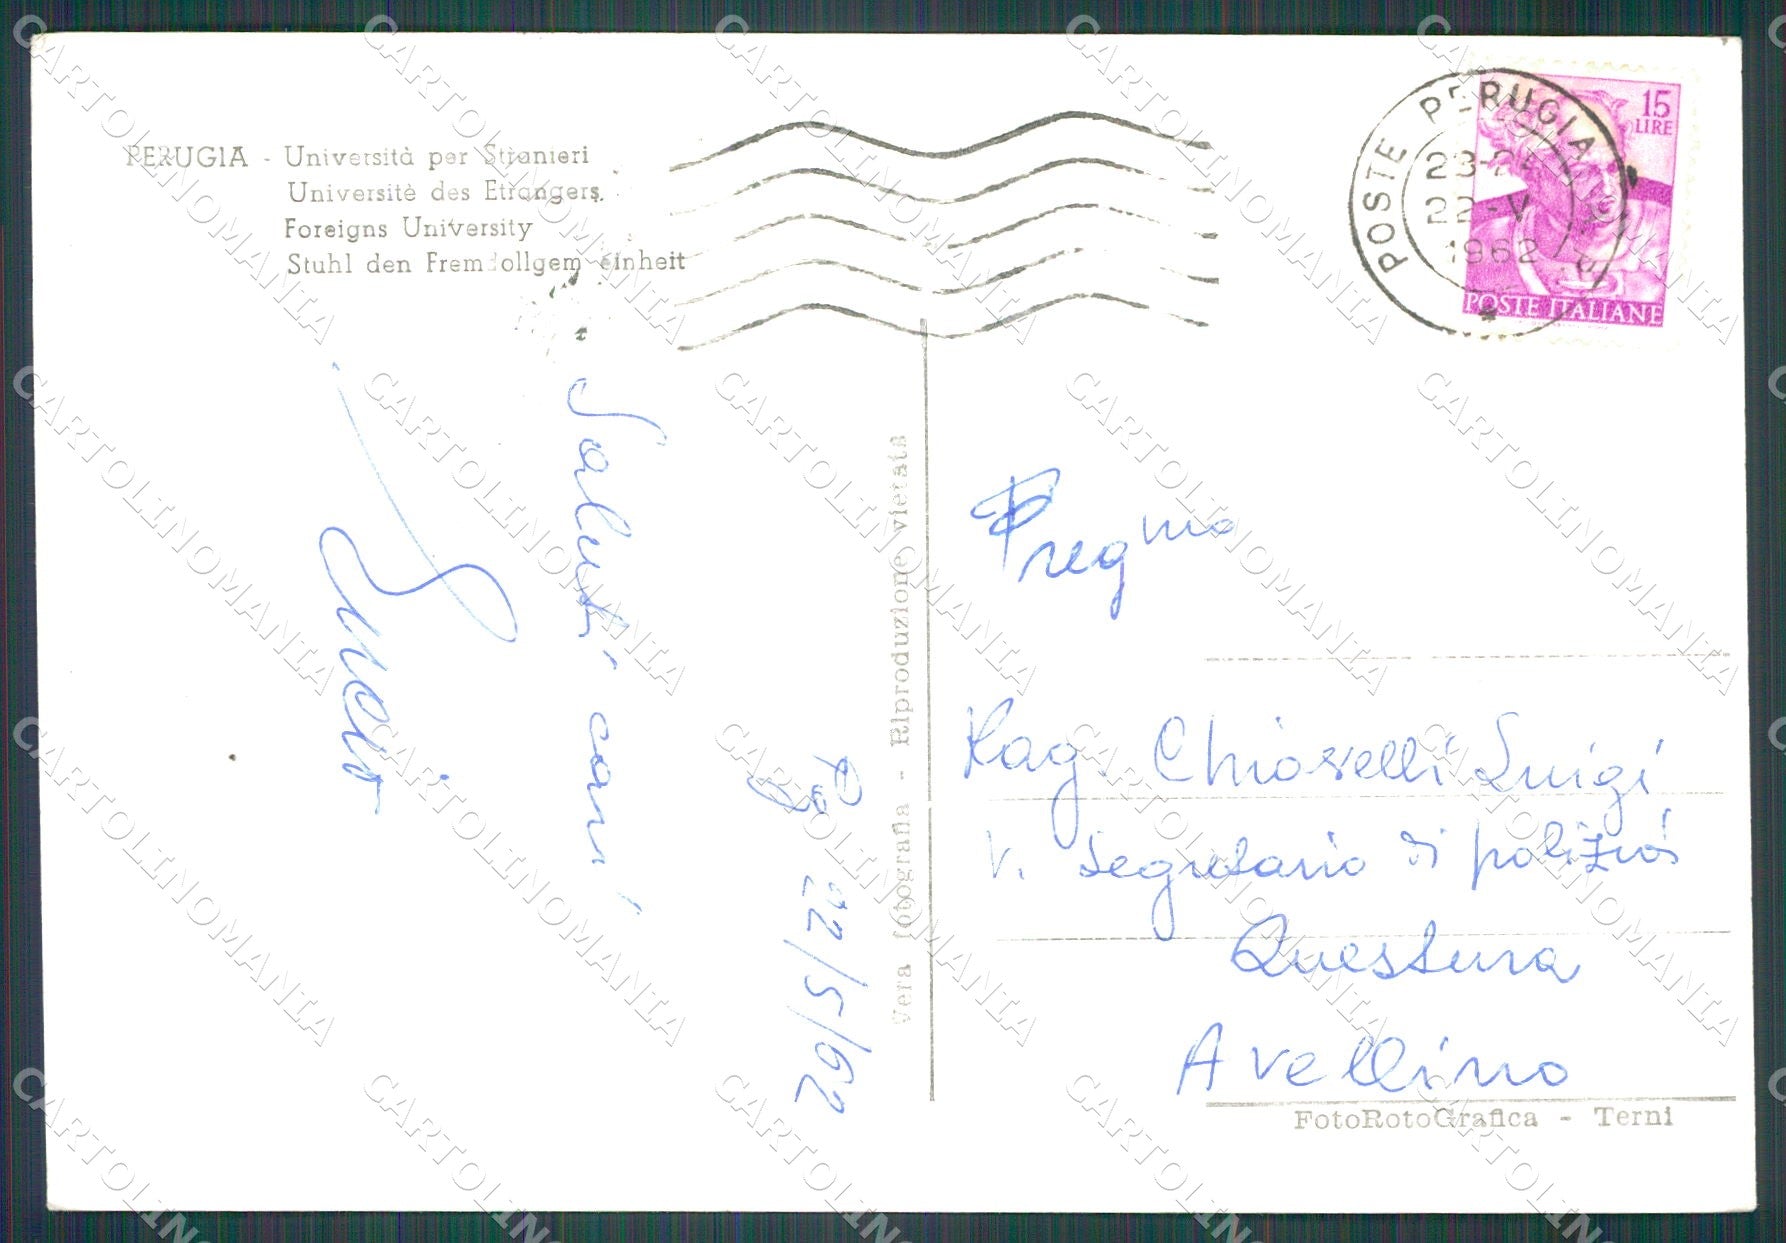 PERUGIA - Università per Stranieri
Universitè des Etrangers.
Foreigns University
Stuhl den Fremdollgem einheit
POSTE PERUGIA
23-24
22-V
1962
15
LIRE
POSTE ITALIANE
Saluti cari
Pg 22/5/62
Vera fotografia - Riproduzione vietata
Preg mo
Rag. Chiaselli Luigi
V. Segretario di polizia
Questura
Avellino
FotoRotoGrafica - Terni
CARTOLINOMANIA